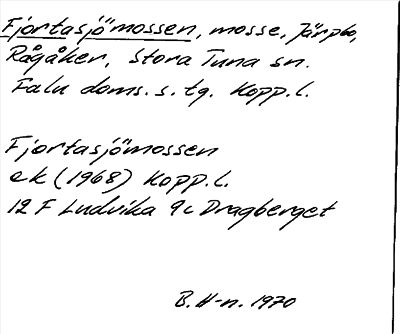 Fjortasjömossen, mosse, Järpbo,
Rågåker, Stora Tuna sn.
Falu doms. s. tg. Kopp. l.
Fjortasjömossen
ek (1968) Kopp. l.
12 F Ludvika 9 c Dragberget
B. H-n. 1970